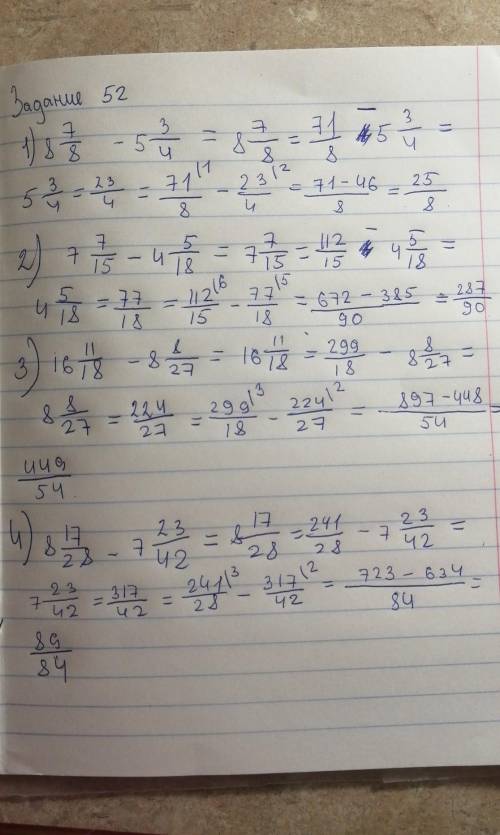 Задание 52
1) 8 7/8 - 5 3/4 = 8 7/8 = 71/8 - 5 3/4 =
5 3/4 = 23/4 = 71\1/8 - 23\2/4 = 71-46/8 = 25/8
2) 7 7/15 - 4 5/18 = 7 7/15 = 112/15 - 4 5/18 =
4 5/18 = 77/18 = 112\6/15 - 77\5/18 = 672-385/90 = 287/90
3) 16 11/18 - 8 8/27 = 16 11/18 = 299/18 - 8 8/27 =
8 8/27 = 224/27 = 299\3/18 - 224\2/27 = 897-448/54 =
449/54
4) 8 17/28 - 7 23/42 = 8 17/28 = 241/28 - 7 23/42 =
7 23/42 = 317/42 = 241\3/28 - 317\2/42 = 723-634/84 =
89/84